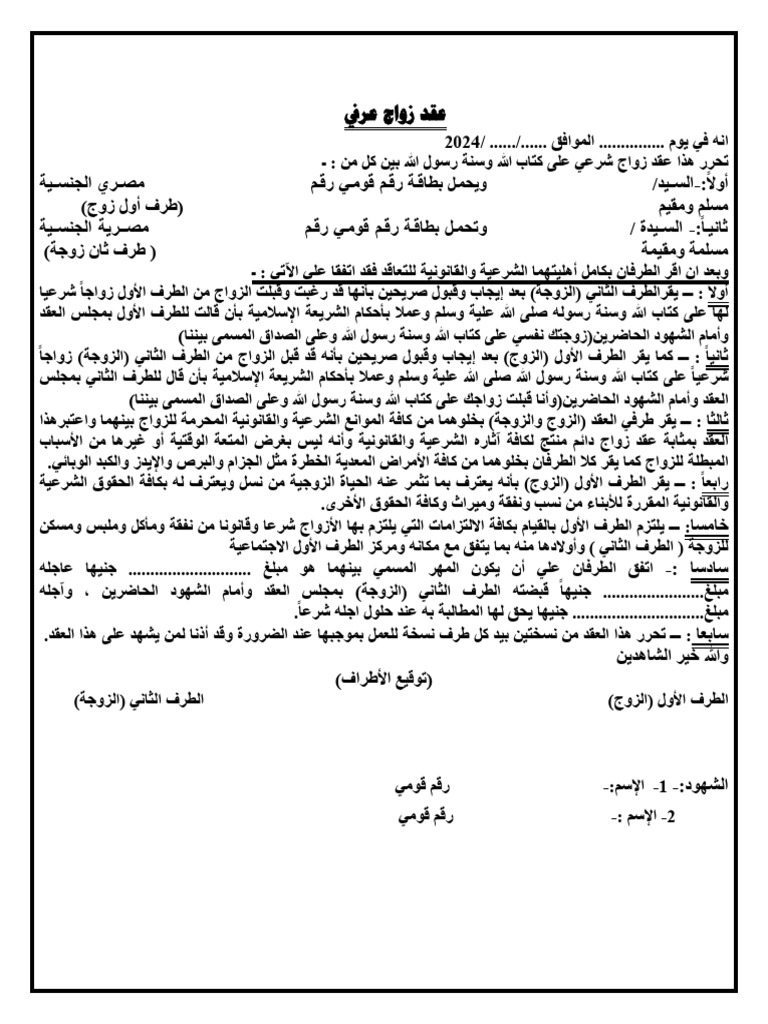 عقد زواج عرفي
انه في يوم ............... الموافق ....../....../ 2024
تحرر هذا عقد زواج شرعي على كتاب الله وسنة رسول الله بين كل من : ـ
أولاً:-السـيد/ ويحمل بطاقـة رقـم قومـي رقـم مصـري الجنسـية
مسلم ومقيم (طرف أول زوج)
ثانيـاً:- السـيدة / وتحمـل بطاقـة رقـم قومـي رقـم مصـرية الجنسـية
مسلمة ومقيمة ( طرف ثان زوجة)
وبعد ان اقر الطرفان بكامل أهليتهما الشرعية والقانونية للتعاقد فقد اتفقا على الآتي : ـ
أولا : ــ يقرالطرف الثاني (الزوجة) بعد إيجاب وقبول صريحين بأنها قد رغبت وقبلت الزواج من الطرف الأول زواجاً شرعيا
لها على كتاب الله وسنة رسوله صلى الله علية وسلم وعملا بأحكام الشريعة الإسلامية بأن قالت للطرف الأول بمجلس العقد
وأمام الشهود الحاضرين(زوجتك نفسي على كتاب الله وسنة رسول الله وعلى الصداق المسمى بيننا)
ثانياً : ــ كما يقر الطرف الأول (الزوج) بعد إيجاب وقبول صريحين بأنه قد قبل الزواج من الطرف الثاني (الزوجة) زواجاً
شرعياً على كتاب الله وسنة رسول الله صلى الله علية وسلم وعملا بأحكام الشريعة الإسلامية بأن قال للطرف الثاني بمجلس
العقد وأمام الشهود الحاضرين(وأنا قبلت زواجك على كتاب الله وسنة رسول الله وعلى الصداق المسمى بيننا)
ثالثا : ــ يقر طرفي العقد (الزوج والزوجة) بخلوهما من كافة الموانع الشرعية والقانونية المحرمة للزواج بينهما واعتبرهذا
العقد بمثابة عقد زواج دائم منتج لكافة آثاره الشرعية والقانونية وأنه ليس بغرض المتعة الوقتية أو غيرها من الأسباب
المبطلة للزواج كما يقر كلا الطرفان بخلوهما من كافة الأمراض المعدية الخطرة مثل الجزام والبرص والإيدز والكبد الوبائي.
رابعاً : ــ يقر الطرف الأول (الزوج) بأنه يعترف بما تثمر عنه الحياة الزوجية من نسل ويعترف له بكافة الحقوق الشرعية
والقانونية المقررة للأبناء من نسب ونفقة وميراث وكافة الحقوق الأخرى.
خامسا: ــ يلتزم الطرف الأول بالقيام بكافة الالتزامات التي يلتزم بها الأزواج شرعا وقانونا من نفقة ومأكل وملبس ومسكن
للزوجة ( الطرف الثاني ) وأولادها منه بما يتفق مع مكانه ومركز الطرف الأول الاجتماعية
سادسا :- اتفق الطرفان علي أن يكون المهر المسمي بينهما هو مبلغ ............................ جنيها عاجله
مبلغ....................... جنيهاً قبضته الطرف الثاني (الزوجة) بمجلس العقد وأمام الشهود الحاضرين ، وآجله
مبلغ.............................. جنيها يحق لها المطالبة به عند حلول اجله شرعاً.
سابعا : ــ تحرر هذا العقد من نسختين بيد كل طرف نسخة للعمل بموجبها عند الضرورة وقد أذنا لمن يشهد على هذا العقد.
والله خير الشاهدين
(توقيع الأطراف)
الطرف الأول (الزوج) الطرف الثاني (الزوجة)
الشهود:- 1- الإسم:- رقم قومي
2- الإسم :- رقم قومي